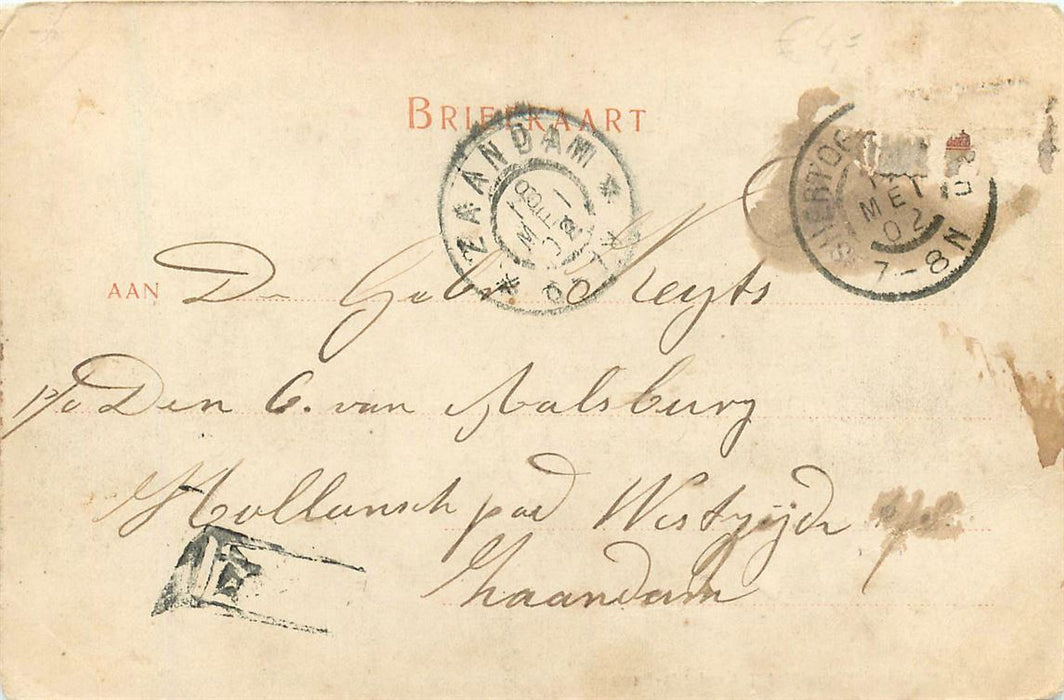 € 4,=
BRIEFKAART
ZAANDAM
S'HERTOG
MEI
02
7-8N
AAN D Gebr Keyts
p/a Den C. van Malsburg
Hollansch pad Westzijde
Zaandam